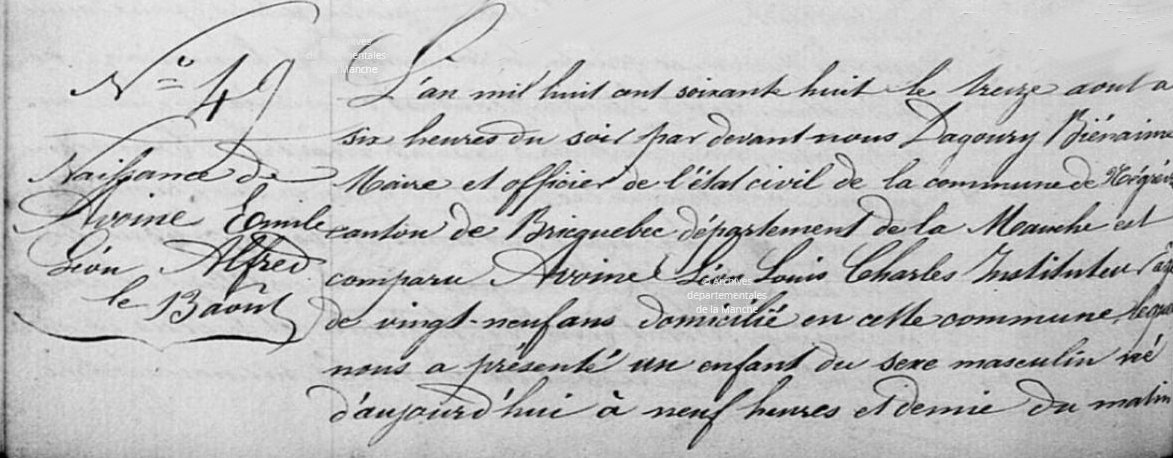 N° 49
Naissance de
Avoine Emile
Léon Alfred
le 13 aout
L'an mil huit cent soixante huit le treize aout a
six heures du soir par devant nous Dagoury Biénaimé
Maire et officier de l'état civil de la commune de
canton de Bricquebec département de la Manche est
comparu Avoine Léon Louis Charles Instituteur
de vingt-neuf ans domicilié en cette commune,
nous a présenté un enfant du sexe masculin né
d'aujourd'hui à neuf heures et demie du matin
© Archives
départementales
de la Manche